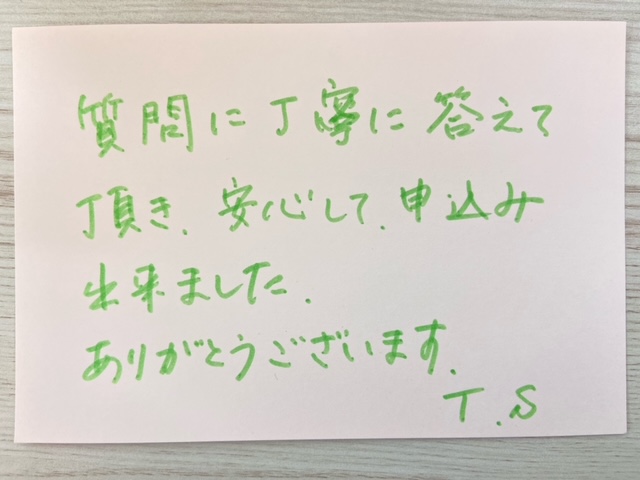 質問に丁寧に答えて
頂き、安心して、申込み
出来ました.
ありがとうございます.
T.S